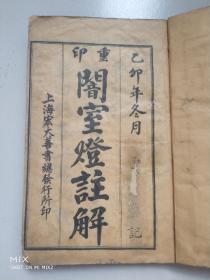 乙卯年冬月
記
重印
闇室燈註解
上海宏大善書總發行所印